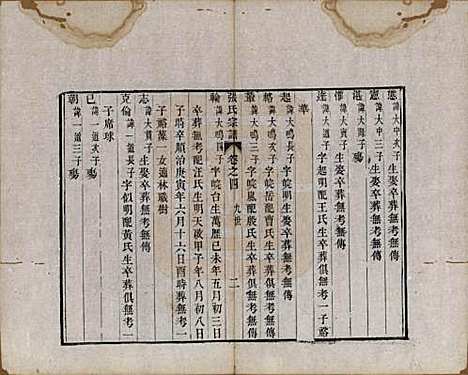 憲 諱大中次子生娶卒葬無考無傳
憲 諱大中三子殤
湛 諱大清子生娶卒葬無考無傳
催 諱大寅子生娶卒葬無考無傳
達 諱大濟子字超明配王氏生卒葬俱無考一子谿
華
起 諱大鳴長子字皖明生娶卒葬無考無傳
輅 諱大鳴次子字皖岳配曹氏生卒葬俱無考無傳
叢 諱大鳴三子字皖嵐配殷氏生卒葬俱無考無傳
張氏宗譜 卷之四 九世 二
輪 諱大鳴四子字皖台生萬歷己未年五月初三日
卒葬無考配汪氏生明天啟甲子年八月初八日
子時卒順治庚寅年六月十六日酉時葬無考二
子谿葉一女適林職樹
志 諱大貫子生娶卒葬無考無傳
克倫 諱一選長子字似明配黃氏生卒葬俱無考一
子席球
己 諱一道次子殤
朝 諱一道三子殤